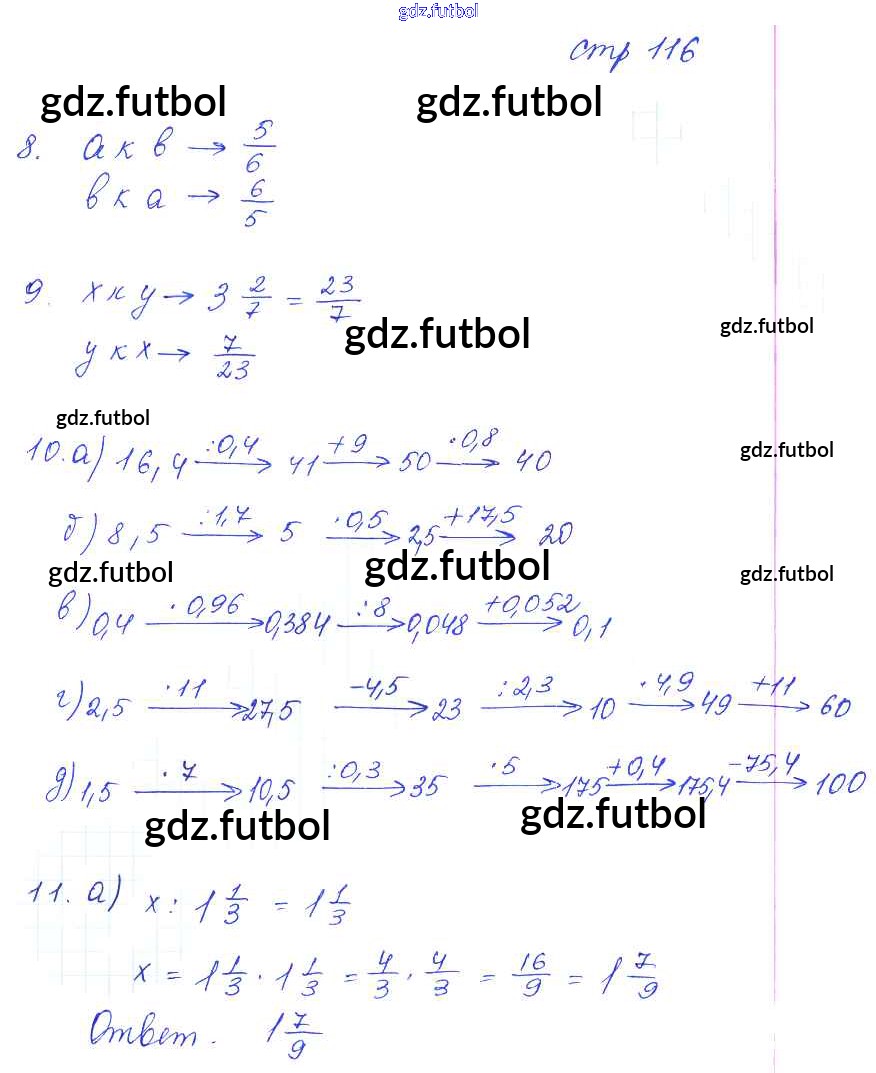 gdz.futbol
стр 116
gdz.futbol gdz.futbol
8. а к в → 5/6
в к а → 6/5
9. х к у → 3 2/7 = 23/7
gdz.futbol gdz.futbol
у к х → 7/23
gdz.futbol
10. а) 16,4 :0,4→ 41 +9→ 50 ·0,8→ 40
gdz.futbol
б) 8,5 :1,7→ 5 ·0,5→ 2,5 +17,5→ 20
gdz.futbol gdz.futbol gdz.futbol
в) 0,4 ·0,96→ 0,384 :8→ 0,048 +0,052→ 0,1
г) 2,5 ·11→ 27,5 -4,5→ 23 :2,3→ 10 ·4,9→ 49 +11→ 60
д) 1,5 ·7→ 10,5 :0,3→ 35 ·5→ 175 +0,4→ 175,4 -75,4→ 100
gdz.futbol gdz.futbol
11. а) х : 1 1/3 = 1 1/3
х = 1 1/3 · 1 1/3 = 4/3 · 4/3 = 16/9 = 1 7/9
Ответ. 1 7/9